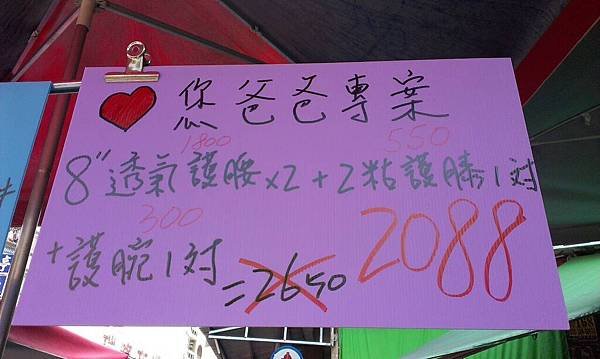 ❤您爸爸專案
1800 550
8"透氣護腰x2+2粘護膝1対
300
+護腕1対=2650 2088